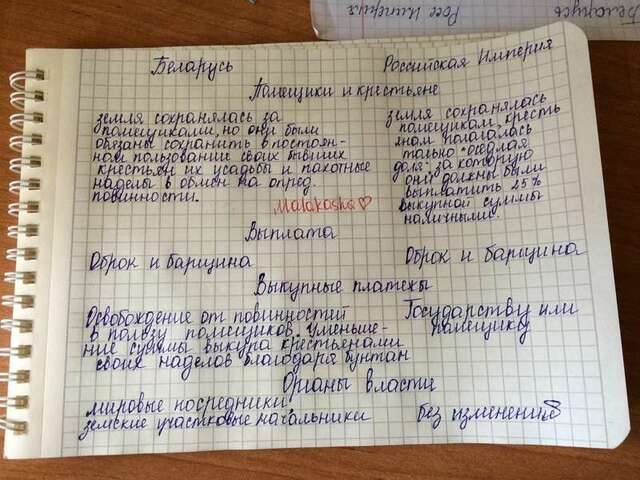 Беларусь
Росс Империя
Беларусь Российская Империя
Помещики и крестьяне
земля сохранялась за
помещиками, но они были
обязаны сохранить в постоян-
ном пользование своих бывших
крестьян их усадьбы и пахотные
наделы в обмен на опред.
повинности.
земля сохранялась
помещикам, кресть
янам полагалась
только "оседлая
доля" за которую
они должны были
выплатить 25%
выкупной суммы
наличными.
Malakasha♡
Выплата
Оброк и барщина Оброк и барщина
Выкупные платежы
Освобождение от повинностей
в ползу помещиков. Уменьше-
ние суммы выкупа крестьянами
своих наделов благодаря бунтам
Государству или
помещику
Органы власти
мировые посредники,
земские участковые начальники
без изменений